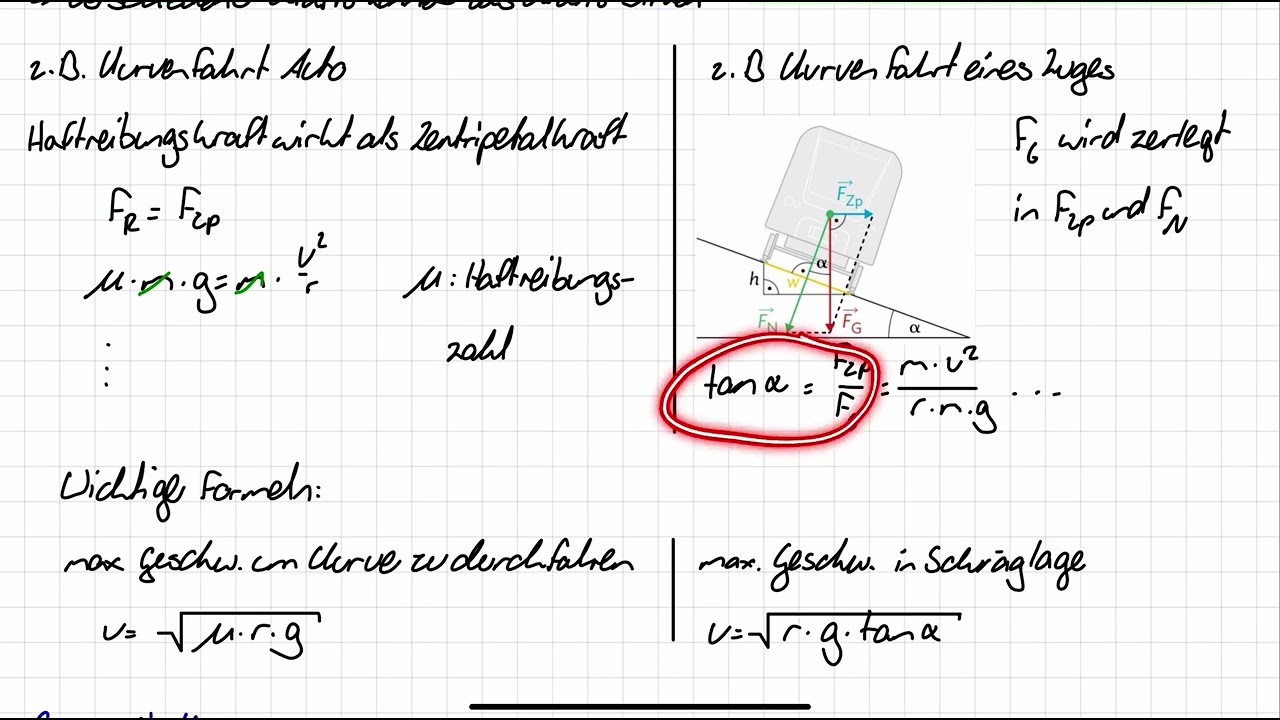 z.B. Kurvenfahrt Auto
Haftreibungskraft wirkt als Zentripetalkraft
F_R = F_Zp
μ·m·g = m · v²/r
μ: Haftreibungs-
zahl
:
:
z.B Kurvenfahrt eines Zuges
F_G wird zerlegt
in F_Zp und F_N
F_Zp
α
h
w
F_N
F_G
α
tan α = F_Zp/F = m·v²/r·m·g ...
Wichtige Formeln:
max. Geschw. um Kurve zu durchfahren
v = √μ·r·g
max. Geschw. in Schräglage
v = √r·g·tan α